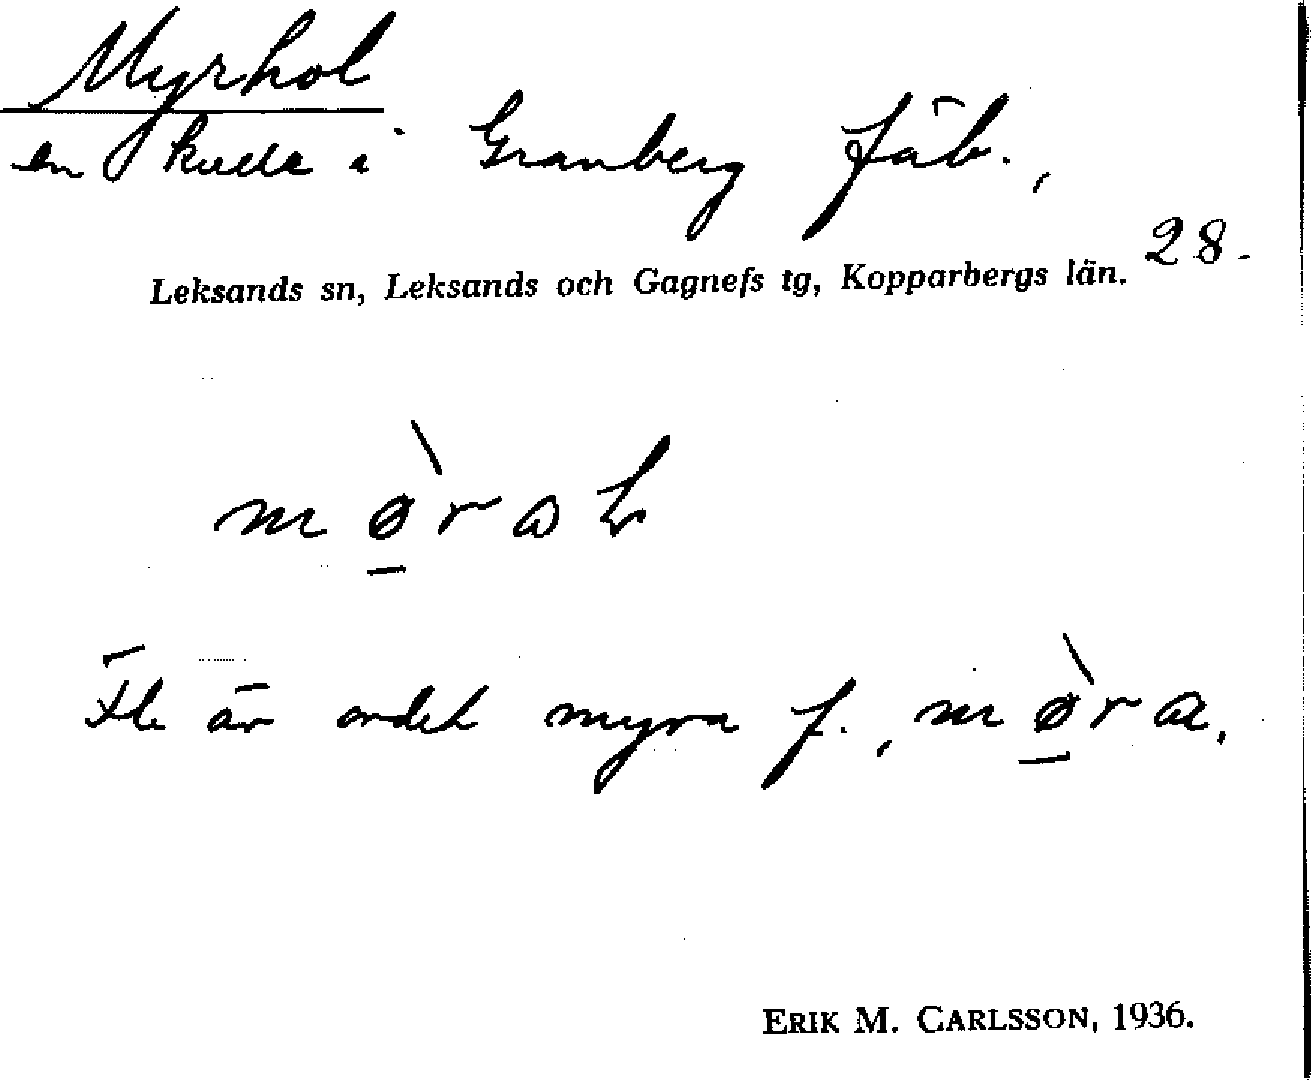 Myrhol
en kulle i Granberg fäb.,
28.
Leksands sn, Leksands och Gagnefs tg, Kopparbergs län.
är ordet myra f.,
ERIK M. CARLSSON, 1936.